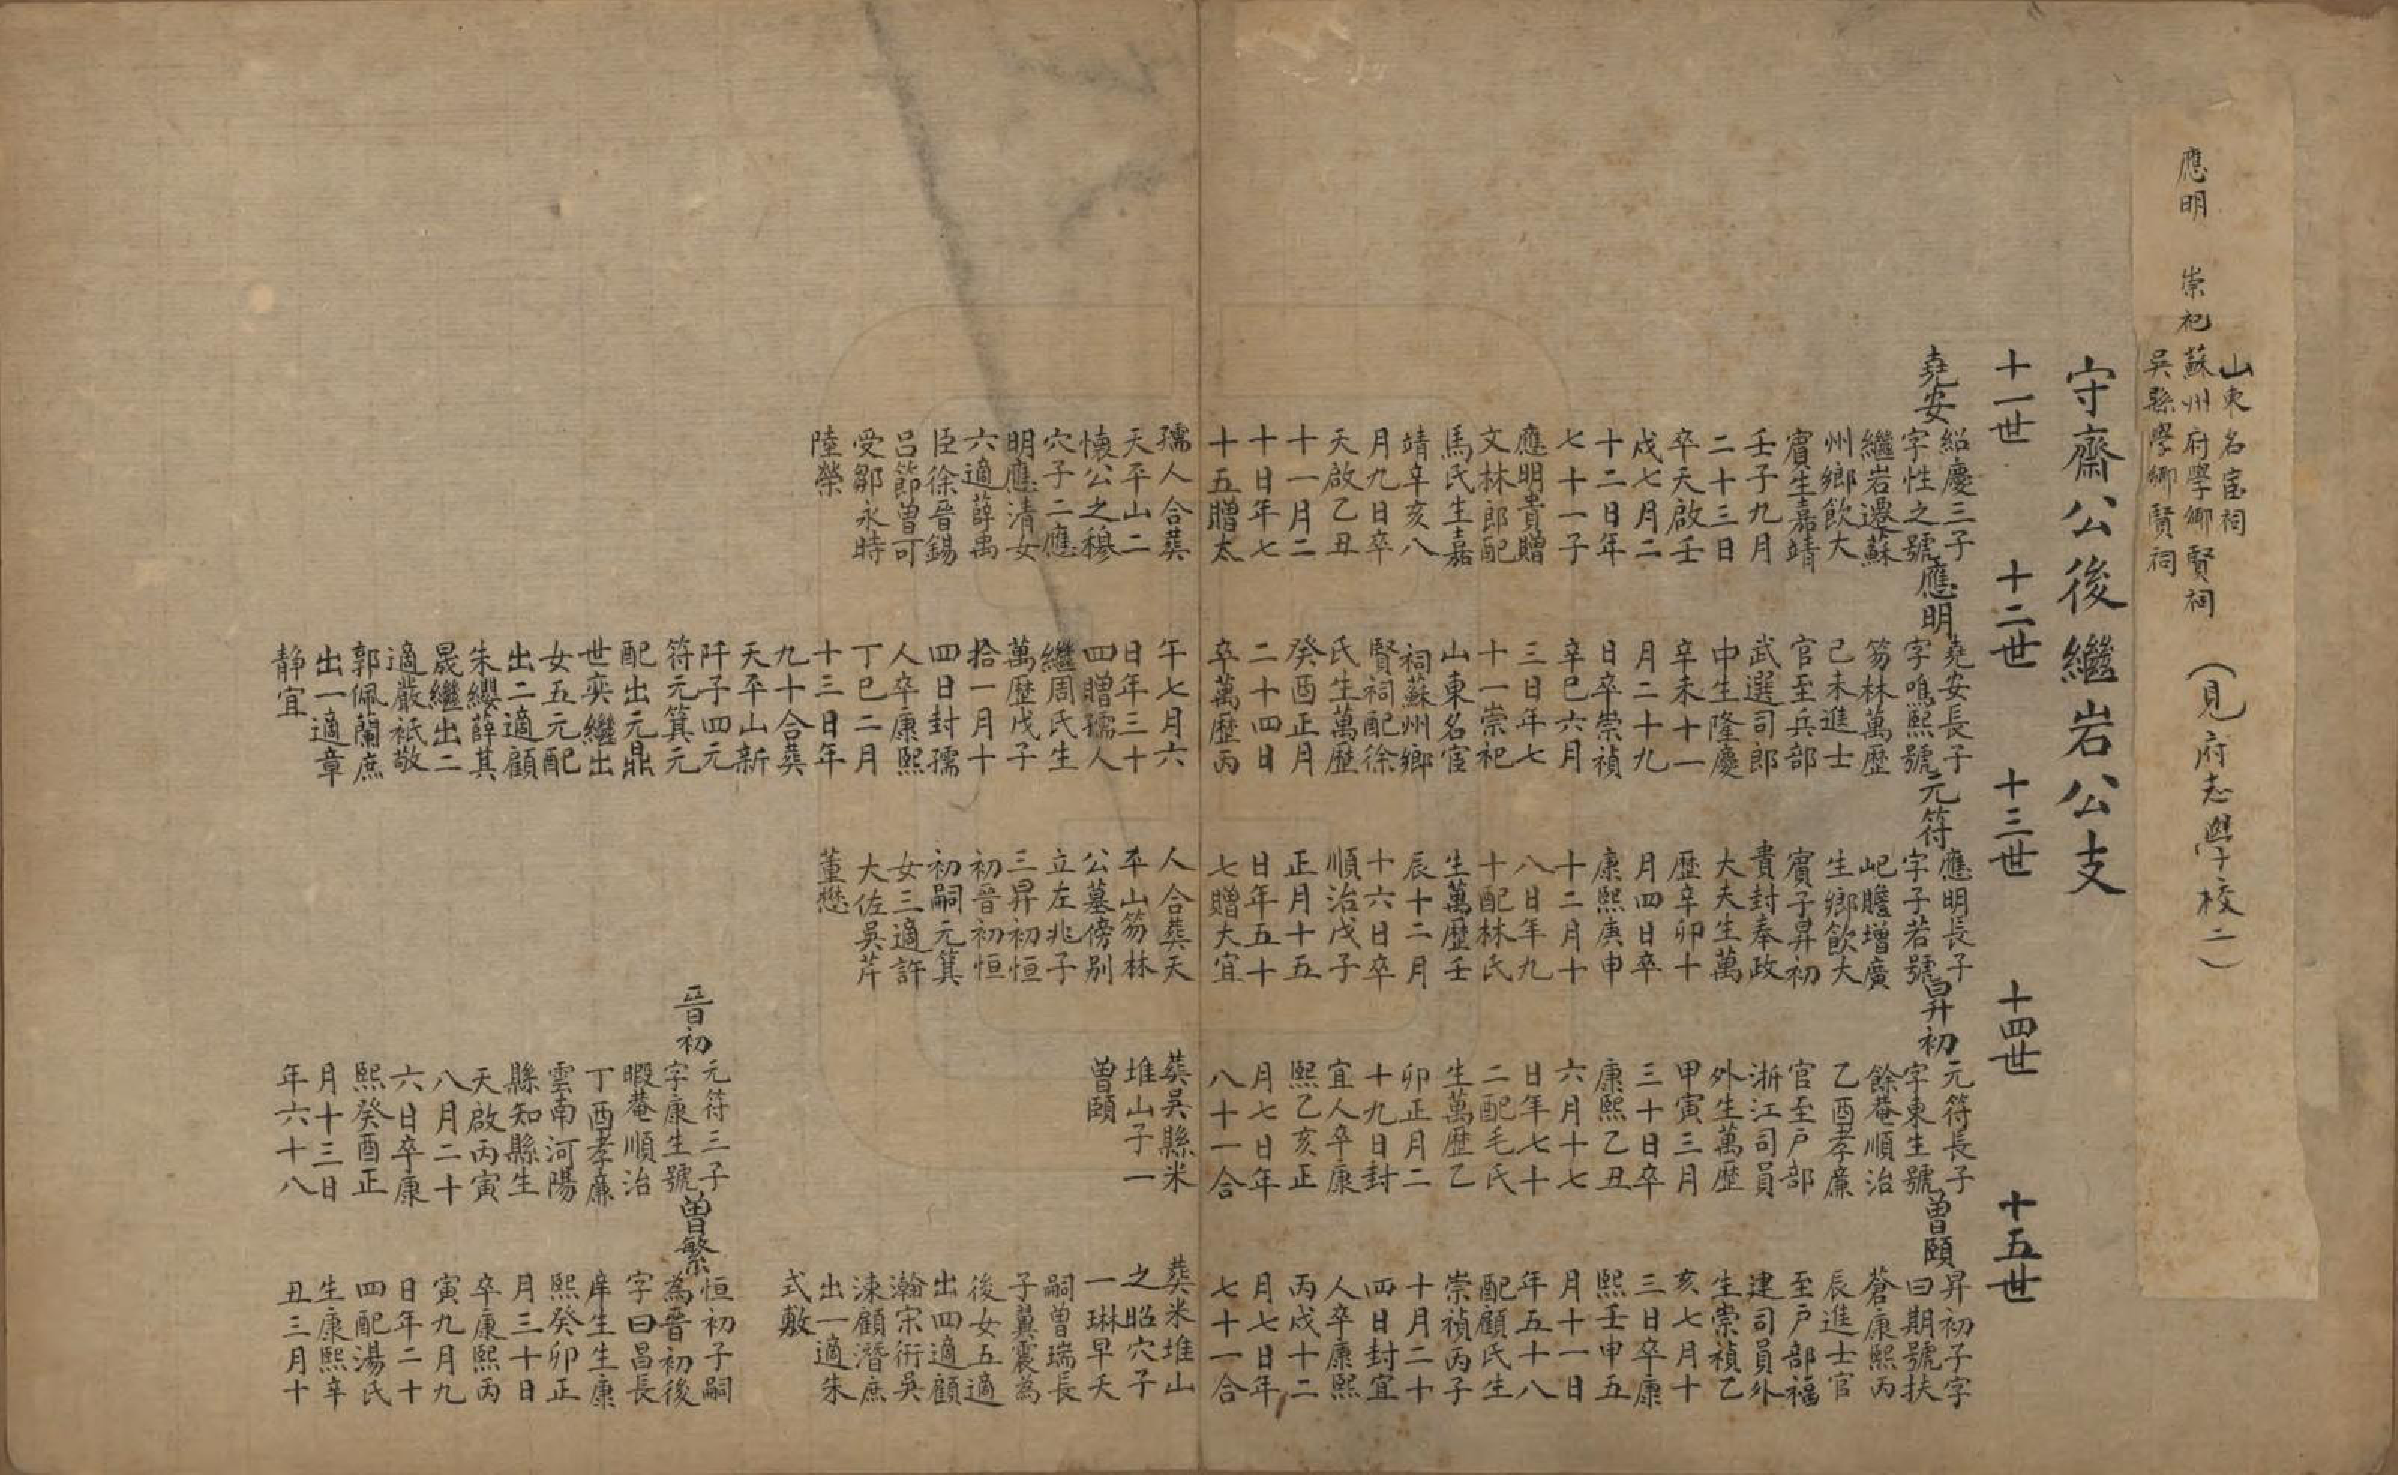 應明　崇祀
山東名宦祠
蘇州府學鄉賢祠
吳縣學鄉賢祠
(見府志學校二)
守齋公後繼岩公支
十一世
十二世
十三世
十四世
十五世
堯安
紹慶三子
字性之號
繼岩遷蘇
州鄉飲大
賓生嘉靖
壬子九月
二十三日
卒天啟壬
戌七月二
十二日年
七十一子
應明貴贈
文林郎配
馬氏生嘉
靖辛亥八
月九日卒
天啟乙丑
十一月二
十日年七
十五贈太
孺人合葬
天平山二
懷公之穆
穴子二應
明應清女
六適薛禹
臣徐晉錫
呂節曾可
受鄒永時
陸榮
應明
堯安長子
字鳴熙號
笏林萬歷
己未進士
官至兵部
武選司郎
中生隆慶
辛未十一
月二十九
日卒崇禎
辛巳六月
三日年七
十一崇祀
山東名宦
祠蘇州鄉
賢祠配徐
氏生萬歷
癸酉正月
二十四日
卒萬歷丙
午七月六
日年三十
四贈孺人
繼周氏生
萬歷戊子
拾一月十
四日封孺
人卒康熙
丁巳二月
十三日年
九十合葬
天平山新
阡子四元
符元箕元
配出元鼎
世奕繼出
女五元配
出二適顧
朱纓薛其
晟繼出二
適嚴祇敬
郭佩蘭庶
出一適章
靜宜
元符
應明長子
字子若號
屺瞻增廣
生鄉飲大
賓子昇初
貴封奉政
大夫生萬
歷辛卯十
月四日卒
康熙庚申
十二月十
八日年九
十配林氏
生萬歷壬
辰十二月
十六日卒
順治戊子
正月十五
日年五十
七贈大宜
人合葬天
平山笏林
公墓傍別
立左兆子
三昇初恒
初晉初恒
初嗣元箕
女三適許
大佐吳芹
董懋
昇初
元符長子
字東生號
餘菴順治
乙酉孝廉
官至戶部
浙江司員
外生萬歷
甲寅三月
三十日卒
康熙乙丑
六月十七
日年七十
二配毛氏
生萬歷乙
卯正月二
十九日封
宜人卒康
熙乙亥正
月七日年
八十一合
葬吳縣米
堆山子一
曾頤
晉初
元符三子
字康生號
暇菴順治
丁酉孝廉
雲南河陽
縣知縣生
天啟丙寅
八月二十
六日卒康
熙癸酉正
月十三日
年六十八
曾頤
昇初子字
曰期號扶
蒼康熙丙
辰進士官
至戶部福
建司員外
生崇禎乙
亥七月十
三日卒康
熙壬申五
月十一日
年五十八
配顧氏生
崇禎丙子
十月二十
四日封宜
人卒康熙
丙戌十二
月七日年
七十一合
葬米堆山
之昭穴子
一琳早夭
嗣曾瑞長
子翼震為
後女五適
出四適顧
瀚宋衍吳
涑顧潛庶
出一適朱
式敷
曾繁
恒初子嗣
為晉初後
字曰昌長
庠生生康
熙癸卯正
月三十日
卒康熙丙
寅九月九
日年二十
四配湯氏
生康熙辛
丑三月十